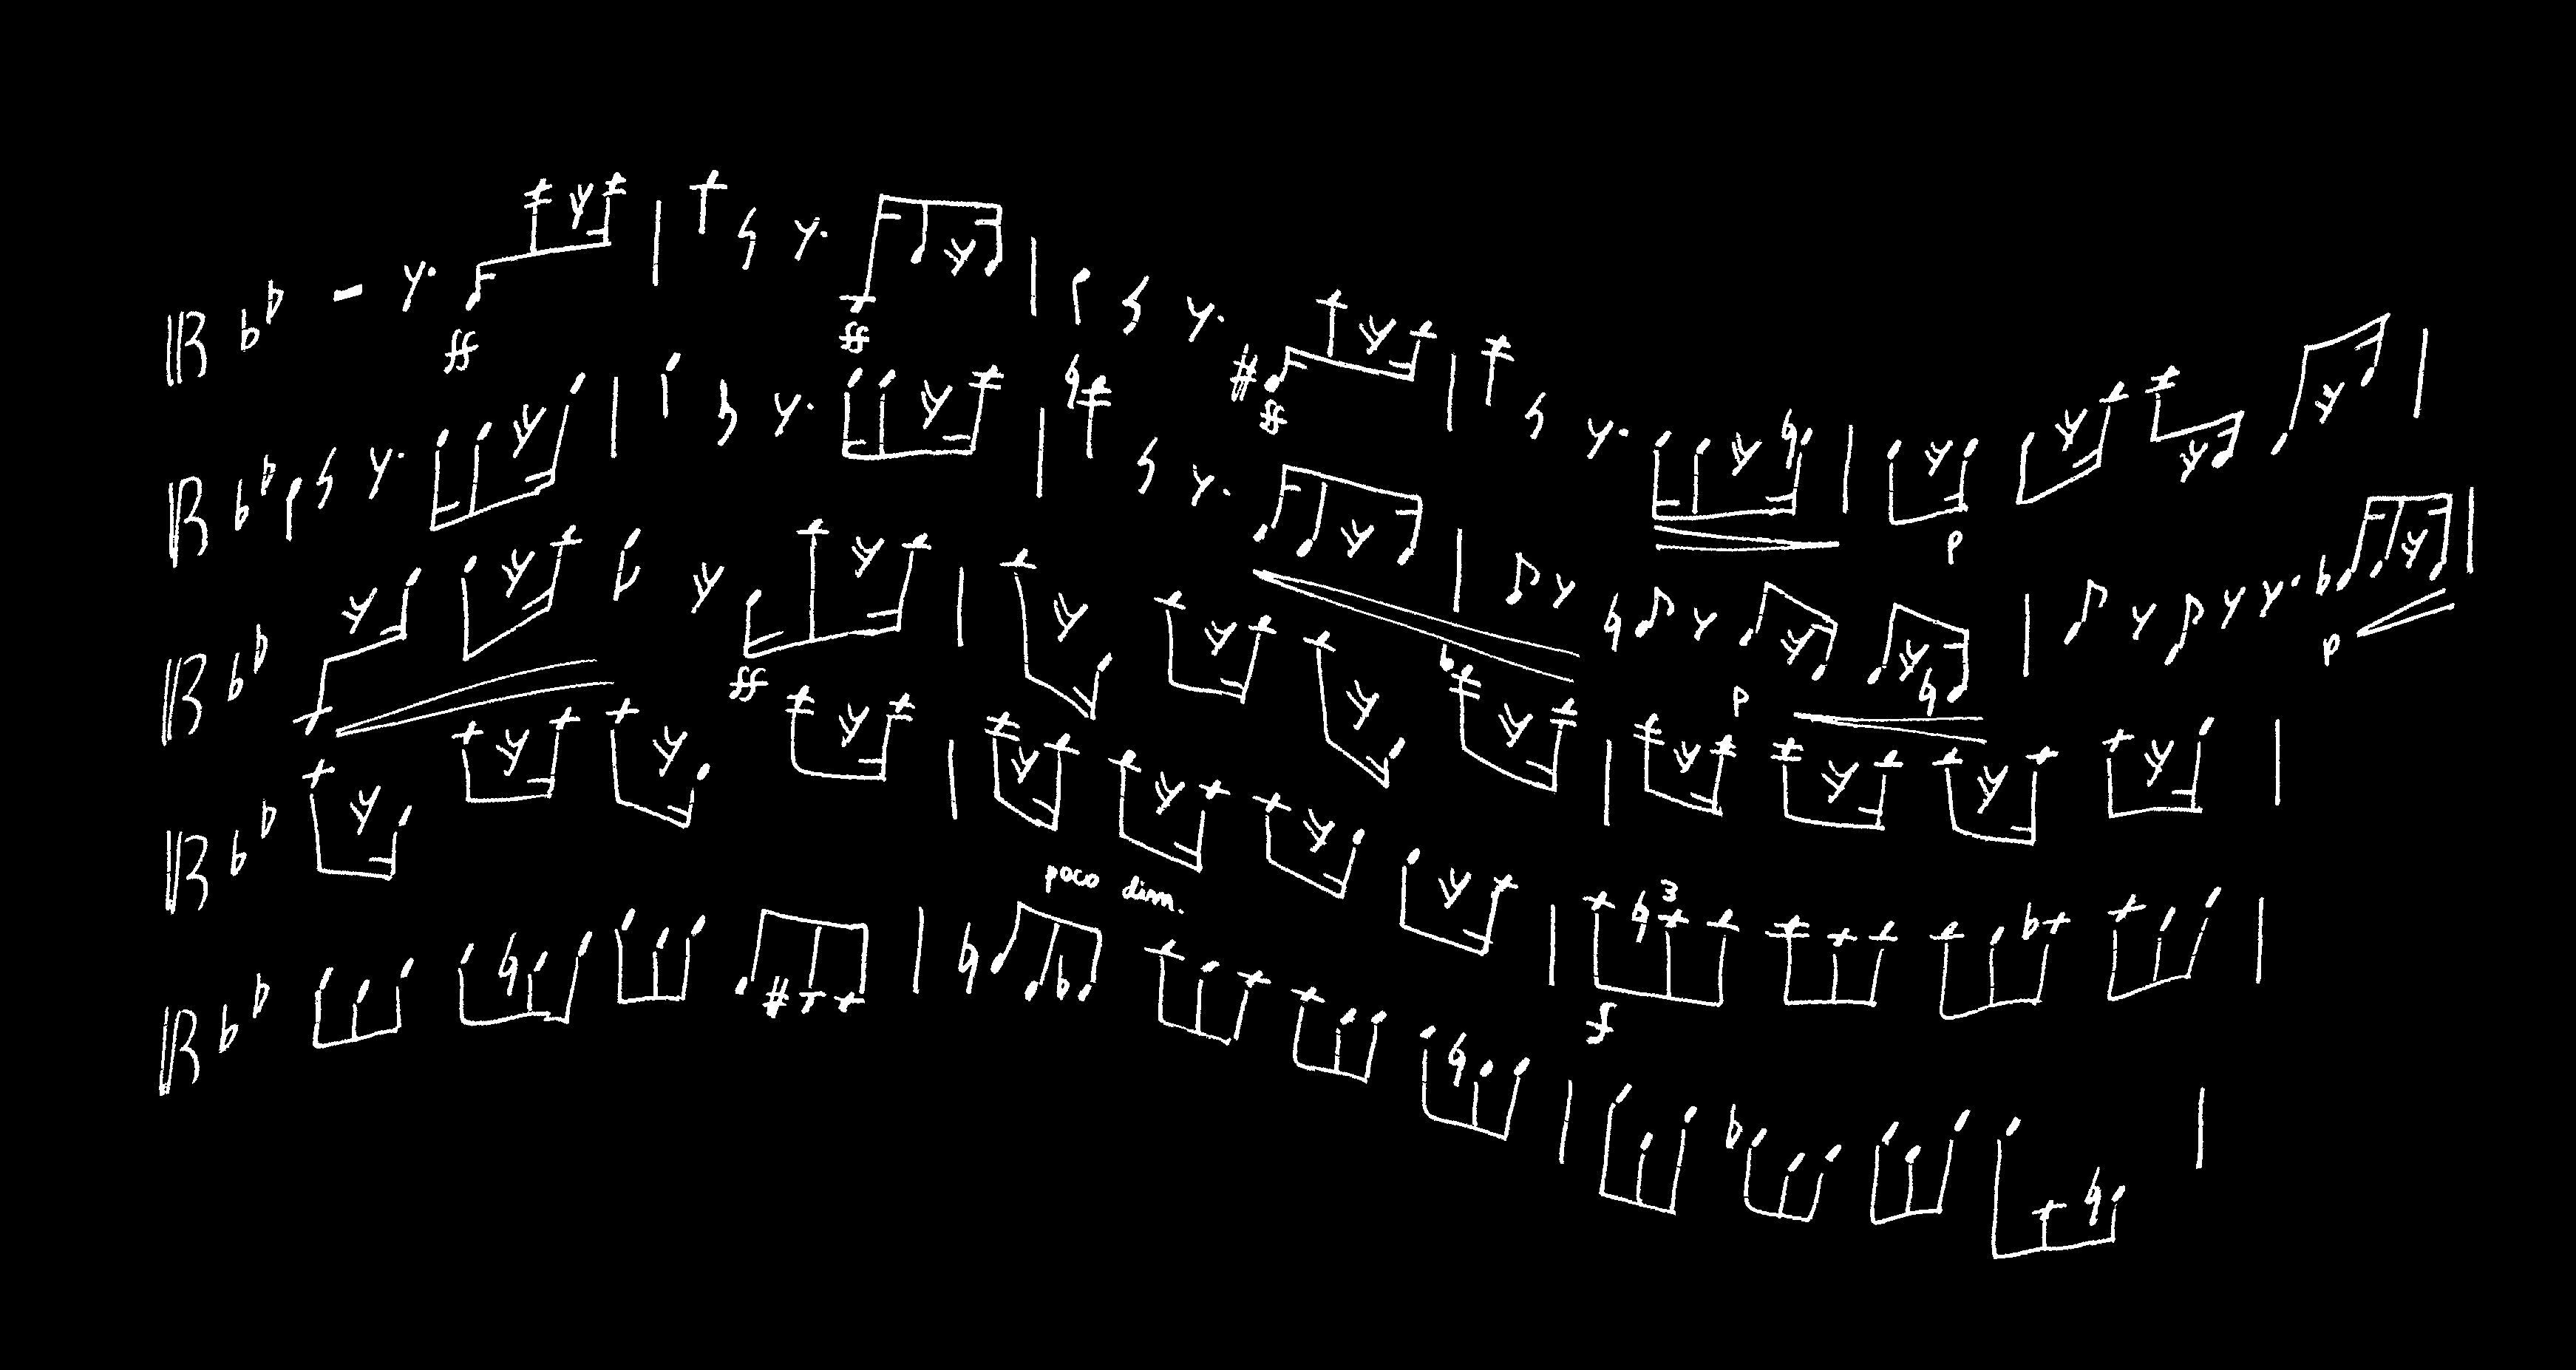 ff ff ff
p
ff p p
poco dim.
3
f